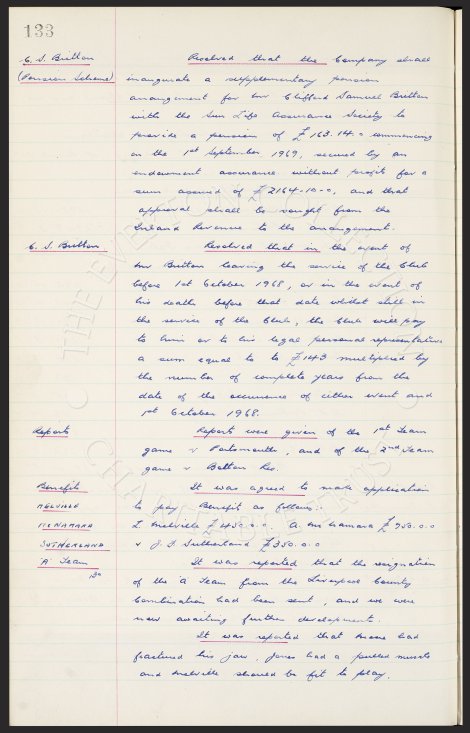 133
C. S. Britton
(Pension Scheme)
Resolved that the Company shall
inaugurate a supplementary pension
arrangement for Mr Clifford Samuel Britton
with the Sun Life Assurance Society to
provide a pension of £163.14.0 commencing
on the 1st September 1969, secured by an
endowment assurance without profit for a
sum assured of £2164-10-0, and that
approval shall be sought from the
Inland Revenue to the arrangement.
C. S. Britton
Resolved that in the event of
Mr Britton leaving the service of the Club
before 1st October 1968, or in the event of
his death before that date whilst still in
the service of the Club, the Club will pay
to him or to his legal personal representative
a sum equal to to £143 multiplied by
the number of complete years from the
date of the occurrence of either event and
1st October 1968.
Reports
Reports were given of the 1st Team
game v Portsmouth, and of the 2nd Team
game v Bolton Res.
Benefits
It was agreed to make application
to pay Benefit as follows:-
MELVILLE
McNAMARA
SUTHERLAND
L Melville £450.0.0. A. McNamara £750.0.0
+ J. F. Sutherland £350.0.0
'A' Team
It was reported that the resignation
of the 'A' Team from the Liverpool County
Combination had been sent, and we were
now awaiting further developments.
It was reported that had
fractured his jaw, Jones had a pulled muscle
and Melville should be fit to play.
THE EVERTON
CHARITABLE